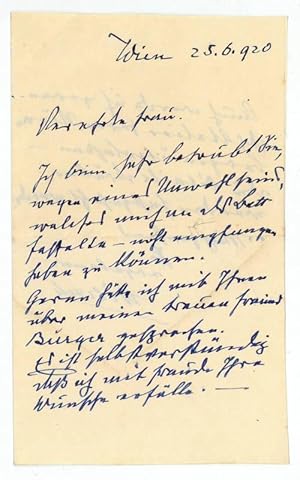 Wien 25.6.920
Verehrte Frau.
Ich binn sehr betrübt Sie,
wegen eines Unwohlseins,
welches mich an das Bett
fesselte – nicht empfangen
haben zu können.
Gerne hätte ich mit Ihnen
über meinen treuen Freund
Burger gesprochen.
Es ist selbstverständig
daß ich mit Freude Ihre
Wünsche erfülle. —